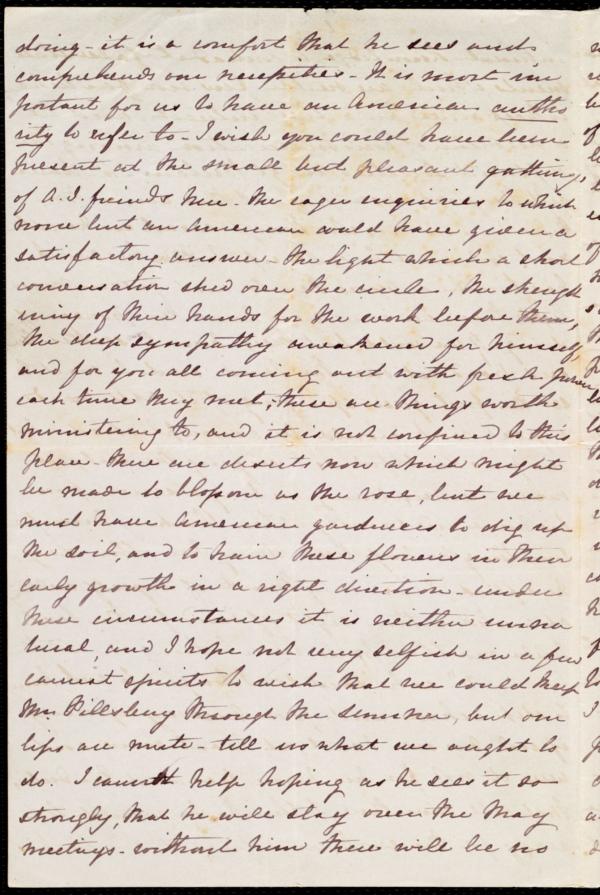 doing - it is a comfort that he sees and
comprehends our necessities - It is most im
portant for us to have an American autho
rity to refer to - I wish you could have been
present at the small but pleasant gathering,
of A.S. friends here - the eager enquiries to which
none but an American could have given a
satisfactory answer - the light which a short
conversation shed over the circle, the strength
ening of their hands for the work before them,
the deep sympathy awakened for himself,
and for you all coming out with fresh power
each time they met, these are things worth
ministering to, and it is not confined to this
place - there are deserts now which might
be made to blossom as the rose, but we
must have American gardeners to dig up
the soil, and to train these flowers in their
early growth in a right direction - under
these circumstances it is neither unna
tural, and I hope not very selfish in a few
earnest spirits to wish that we could keep
Mr. Pillsbury through the summer, but our
lips are mute - tell us what we ought to
do. I cannot help hoping as he sees it so
strongly, that he will stay over the May
meetings - without him there will be no